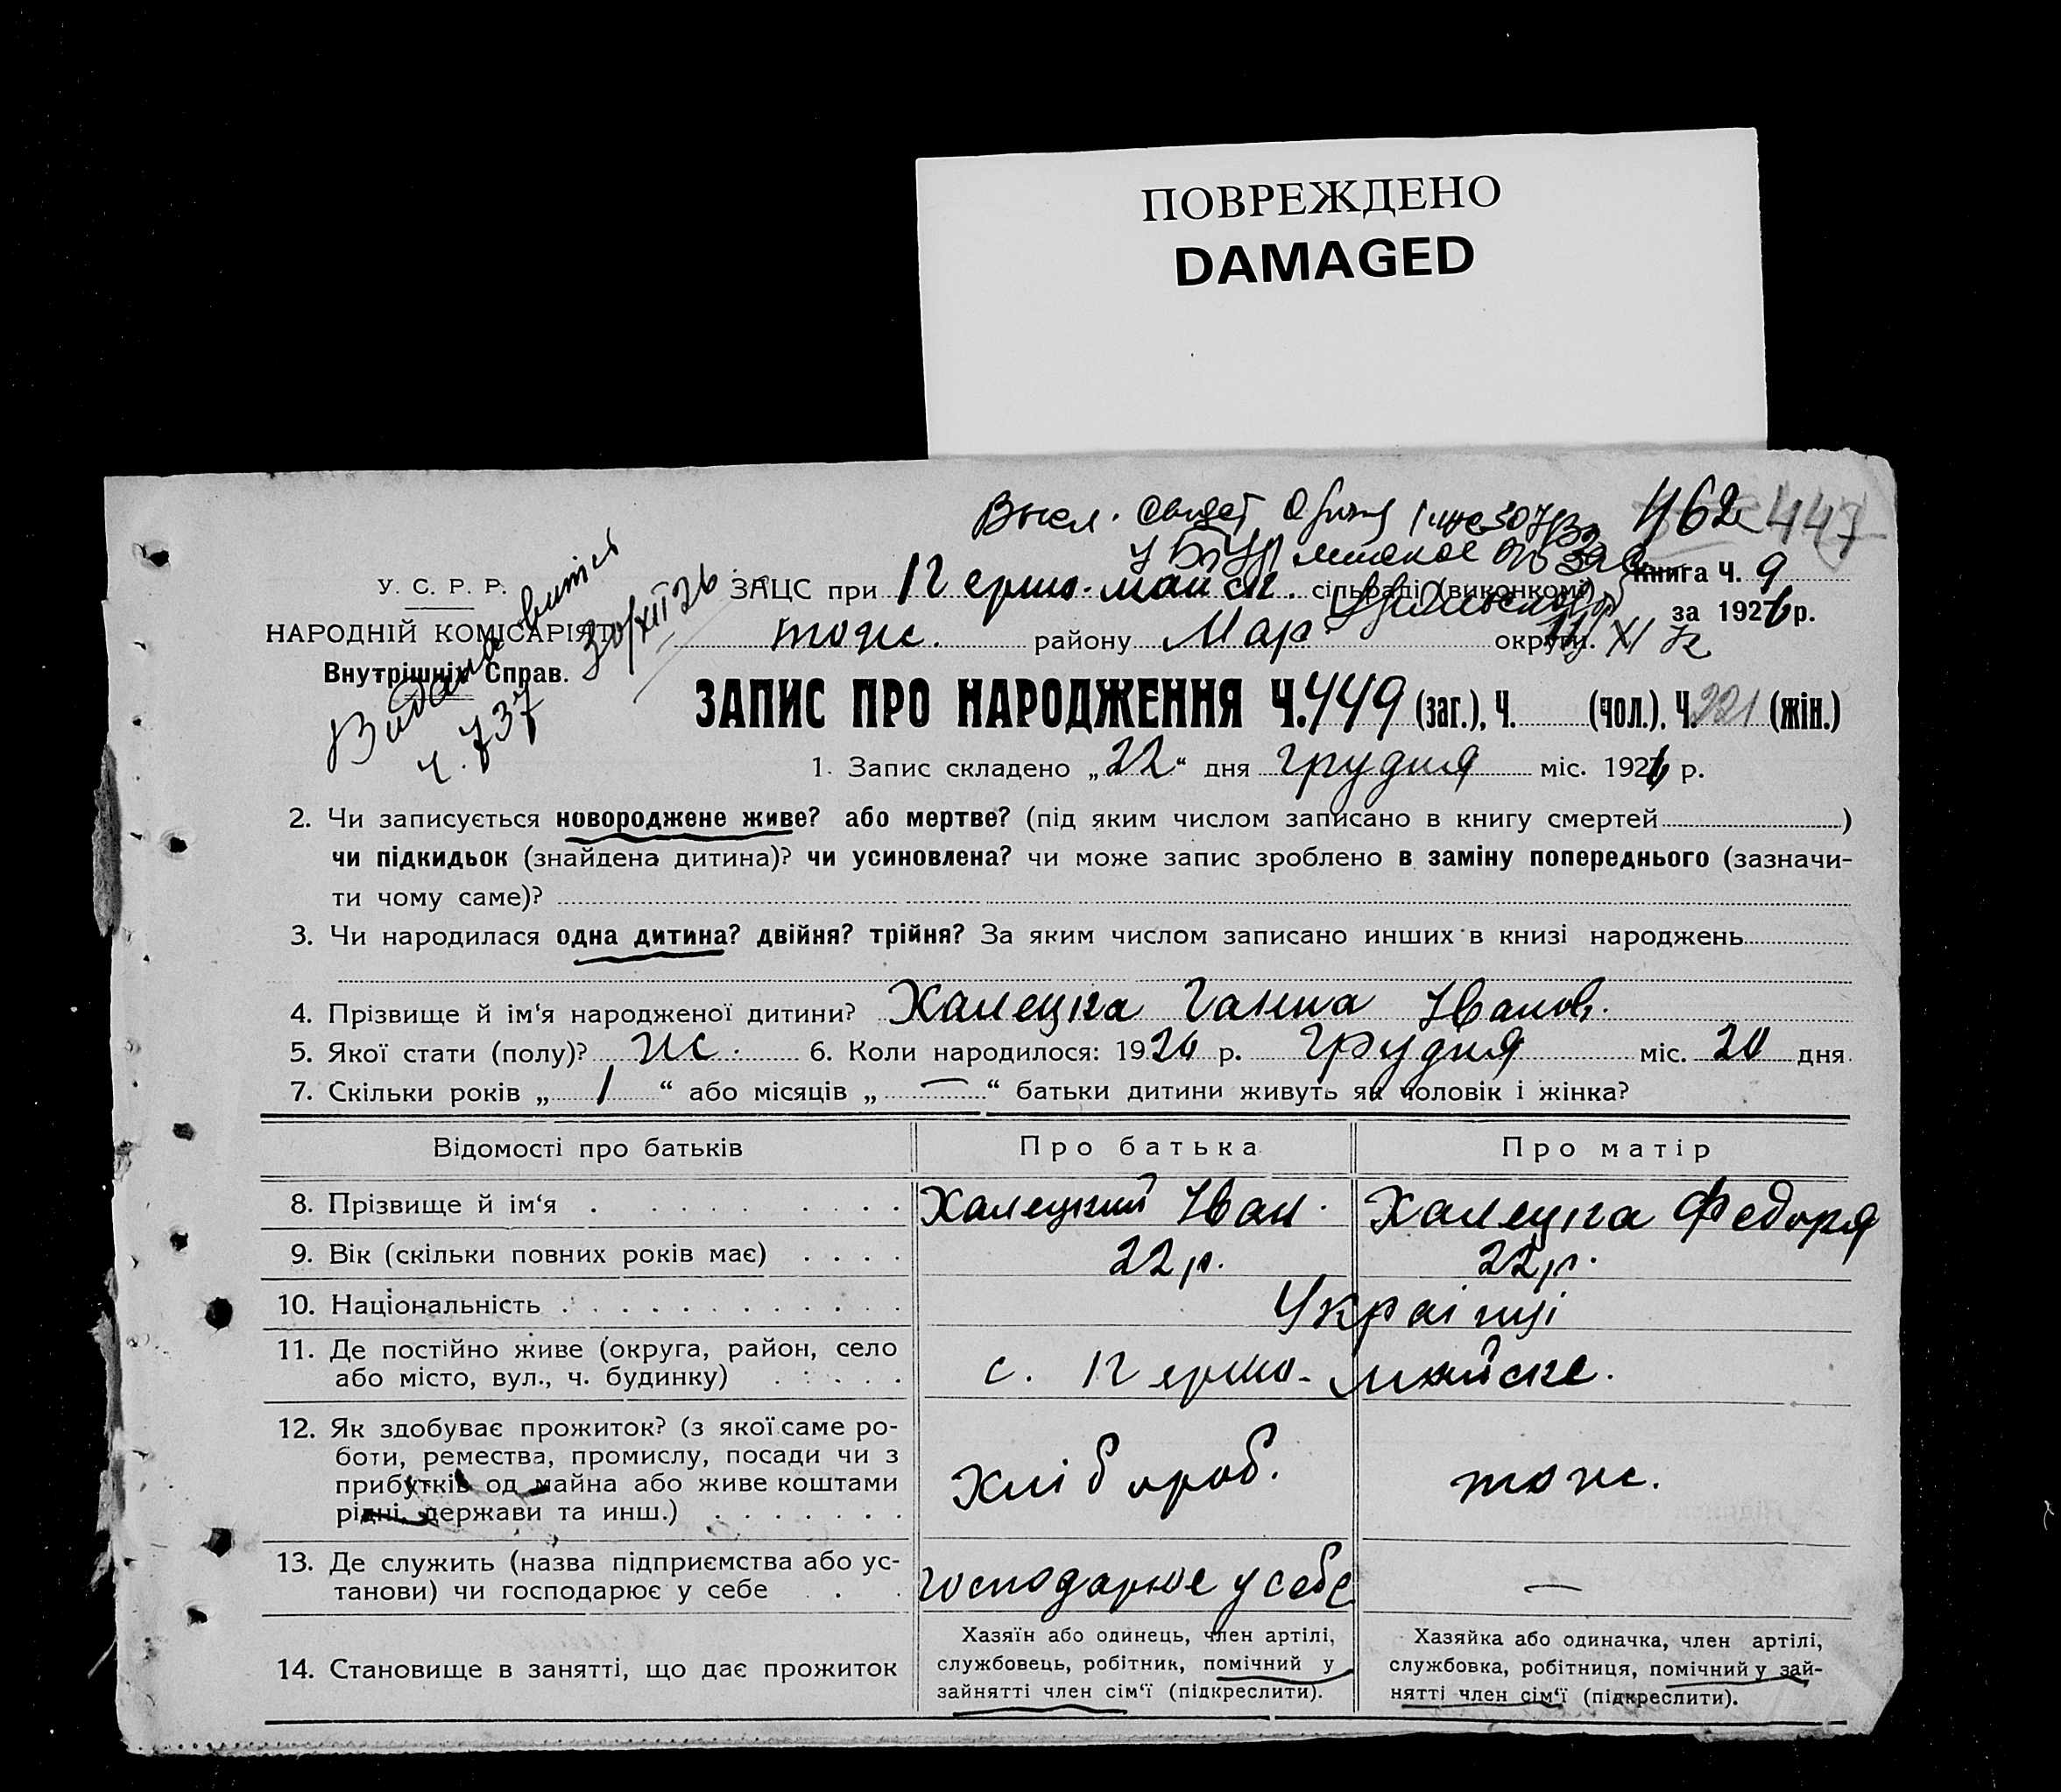 ПОВРЕЖДЕНО
DAMAGED
462 447
У. С. Р. Р.
НАРОДНІЙ КОМІСАРІЯТ
Внутрішніх Справ.
Видана витись
ч. 737
30/XII 26
ЗАЦС при Першо-майськ. сільраді (виконкомі)
Книга ч. 9
за 1926 р.
тож. району Мар. округи.
ЗАПИС ПРО НАРОДЖЕННЯ Ч. 449 (заг.), Ч. (чол.), Ч. 221 (жін.)
1. Запис складено „22“ дня грудня міс. 1926 р.
2. Чи записується новороджене живе? або мертве? (під яким числом записано в книгу смертей )
чи підкидьок (знайдена дитина)? чи усиновлена? чи може запис зроблено в заміну попереднього (зазначи-
ти чому саме)?
3. Чи народилася одна дитина? двійня? трійня? За яким числом записано инших в книзі народжень
4. Прізвище й ім‘я народженої дитини? Халецка Ганна Іванов.
5. Якої стати (полу)? ж. 6. Коли народилося: 1926 р. грудня міс. 20 дня
7. Скільки років „ 1 “ або місяців „ — “ батьки дитини живуть як чоловік і жінка?
Відомості про батьків Про батька Про матір
8. Прізвище й ім‘я Халецкий Іван. Халецка Федоря
9. Вік (скільки повних років має) 22 р. 22 р.
10. Національність Українці
11. Де постійно живе (округа, район, село
або місто, вул., ч. будинку) с. Першо-майське.
12. Як здобуває прожиток? (з якої саме ро-
боти, ремества, промислу, посади чи з
прибутків од майна або живе коштами
рідні, держави та инш.) хлібороб. тож.
13. Де служить (назва підприємства або ус-
танови) чи господарює у себе господарює у себе —
14. Становище в занятті, що дає прожиток
Хазяїн або одинець, член артілі,
службовець, робітник, помічний у
зайнятті член сім‘ї (підкреслити).
Хазяйка або одиначка, член артілі,
службовка, робітниця, помічний у зай-
нятті член сім‘ї (підкреслити).